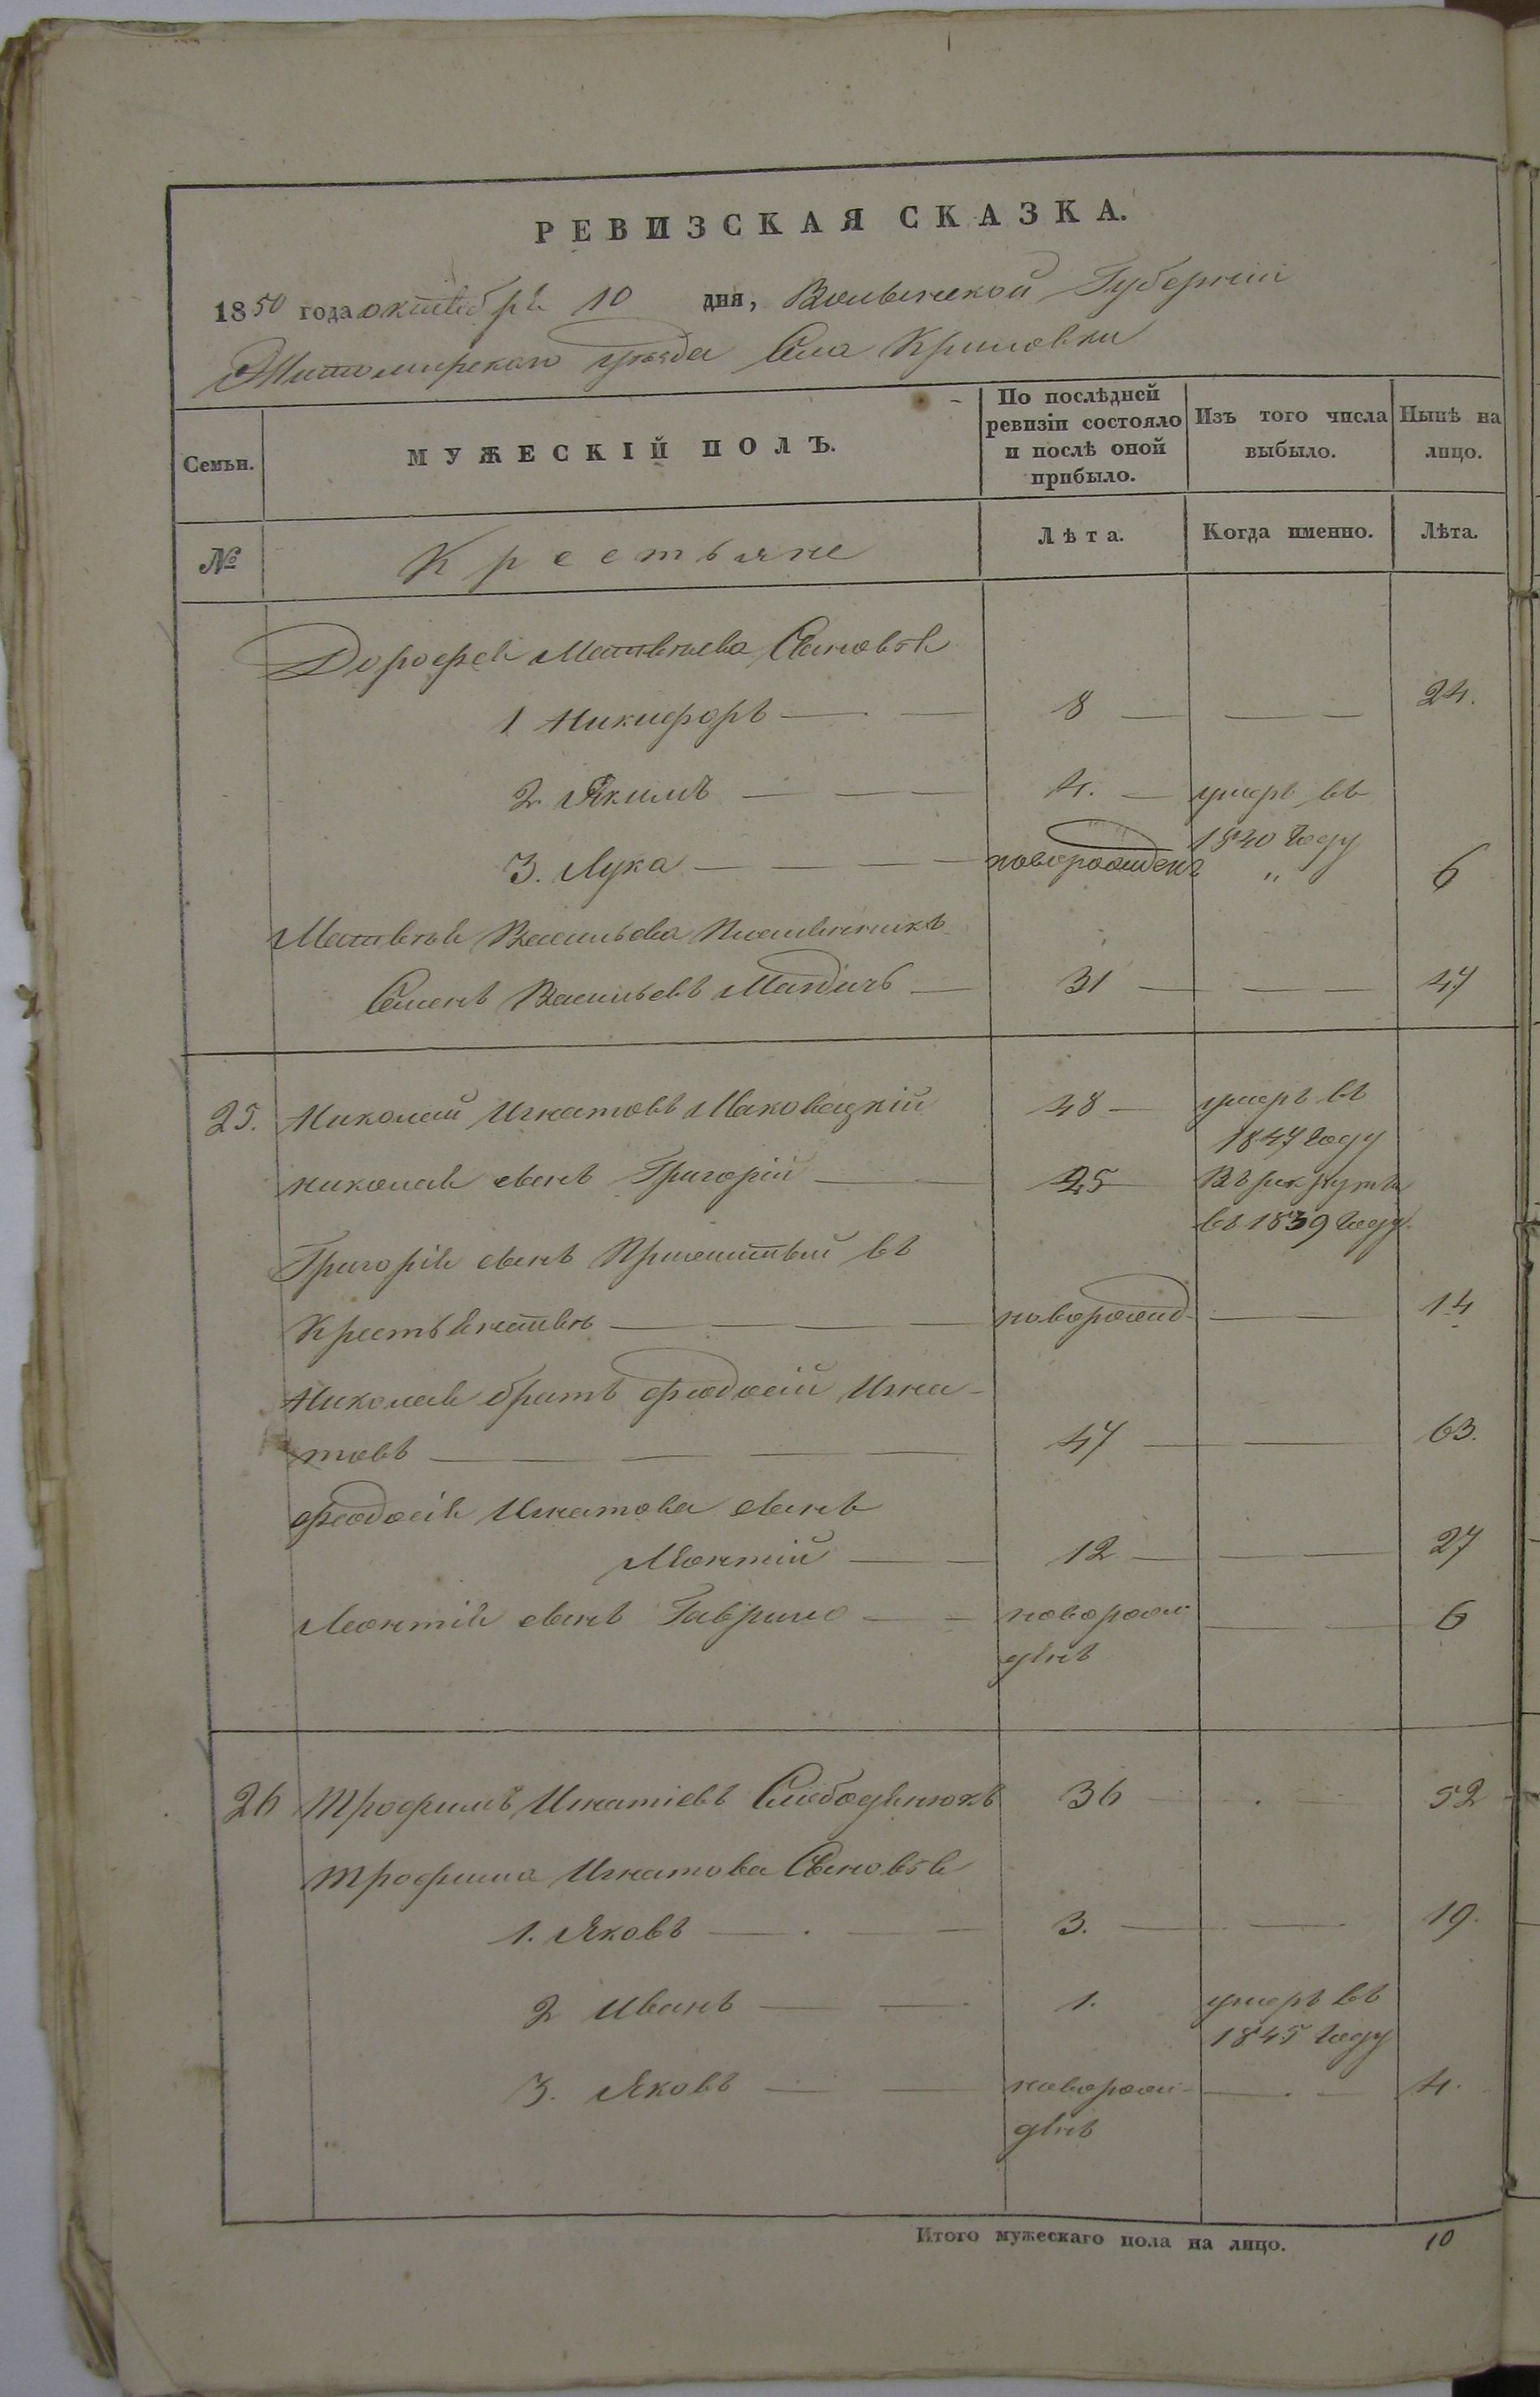 РЕВИЗСКАЯ СКАЗКА.
1850 года октября 10 дня, Волынской Губерніи
Житомирскаго уѣзда Села Криловки
Семьи. МУЖЕСКІЙ ПОЛЪ. По послѣдней ревизіи состояло и послѣ оной прибыло. Изъ того числа выбыло. Нынѣ на лицо.
№ Крестьяне Лѣта. Когда именно. Лѣта.
Дорофея Матвѣева Сыновья
1 Никифоръ 8 24.
2. Якимъ 4. умеръ въ
1840 году
3. Лука новорожденъ " 6
Матвѣя Васильева Племянникъ
Семенъ Васильевъ 31 47
25. Николай Игнатовъ Маковецкій 48 умеръ въ
1847 году
николая сынъ Григорій 25 Въ рекруты
въ 1839 году
Григорія сынъ въ
новорожд. 14
Николая братъ Феодосій Игна-
товъ 47 63.
Феодосія Игнатова сынъ
Леонтій 12 27
Леонтія сынъ Гаврило новорож- 6
денъ
26 Трофимъ Игнатіевъ Слободенюкъ 36 52
Трофима Игнатова Сыновья
1. Яковъ 3. 19.
2 Иванъ 1. умеръ въ
1845 году
3. Яковъ новорож- 4.
денъ
Итого мужескаго пола на лицо. 10